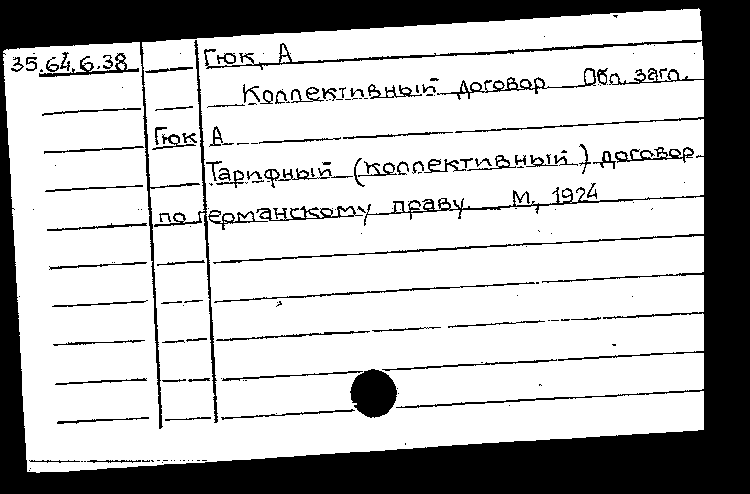 35.64.6.38 Гюк, А
Коллективный договор Обл. загл.
Гюк А
Тарифный (коллективный) договор
по германскому праву М., 1924